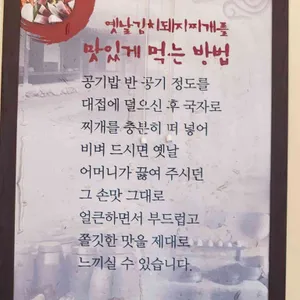 옛날김치돼지찌개를
맛있게 먹는 방법
공기밥 반 공기 정도를
대접에 덜으신 후 국자로
찌개를 충분히 떠 넣어
비벼 드시면 옛날
어머니가 끓여 주시던
그 손맛 그대로
얼큰하면서 부드럽고
쫄깃한 맛을 제대로
느끼실 수 있습니다.